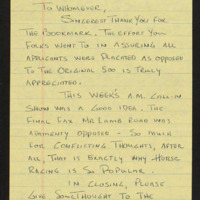 TO WHOMEVER,
SINCEREST THANK YOU FOR
THE BOOKMARK. THE EFFORT YOU
FOLKS WENT TO IN ASSURING ALL
APPLICANTS WERE PLACATED AS OPPOSED
TO THE ORIGINAL 500 IS TRULY
APPRECIATED.
THIS WEEK'S A.M. CALL-IN
SHOW WAS A GOOD IDEA. THE
FINAL FAX MR LAMB READ WAS
ADAMENTLY OPPOSED - SO MUCH
FOR CONFLICTING THOUGHTS, AFTER
ALL, THAT IS EXACTLY WHY HORSE
RACING IS SO POPULAR.
IN CLOSING, PLEASE
GIVE SOME THOUGHT TO THE